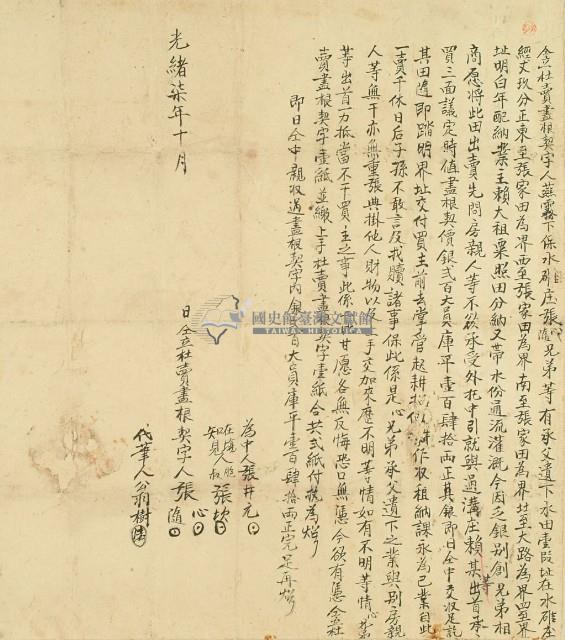 仝立杜賣盡根契字人燕霧下保水碓庄張心隨兄弟等有承父遺下水田壹段址在水碓庄
經丈玖分正東至張家田為界西至張家田為界南至張家田為界北至大路為界四至界
址明白年配納業主賴大租粟照田分納又帶水份通流灌溉今因乏銀別創兄弟相
商愿將此田出賣先問房親人等不欲承受外托中引就與過溝庄賴某等出首承
買三面議定時值盡根契價銀弍百大員庫平壹百肆拾兩正其銀即日仝中交收足訖
其田隨即踏明界址交付買主前去掌管起耕招佃耕作收租納課永為己業自此
一賣千休日后子孫不敢言及找贖諸事保此係是心兄弟承父遺下之業與別房親
人等無干亦無重張典掛他人財物以及上手交加來歷不明等情如有不明等情心兄弟
等出首一力抵當不干買主之事此係甘愿各無反悔恐口無憑今欲有憑仝立杜
賣盡根契字壹紙並繳上手杜賣盡契字壹紙合共弍紙付執為炤
即日仝中親收過盡根契字內銀百大員庫平壹百肆拾兩正完足再炤
為中人張井元
在塲
知見人叔張
光緒柒年十月 日仝立杜賣盡根契字人張心隨
代筆人翁樹
國史館臺灣文獻館
TAIWAN HISTORICA